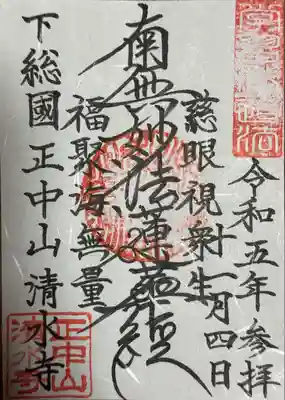 令和五年 参拝
十一月四日
慈眼視衆生
南無妙法蓮華経
福聚海無量
下総國正中山清水寺
正中山
清水寺